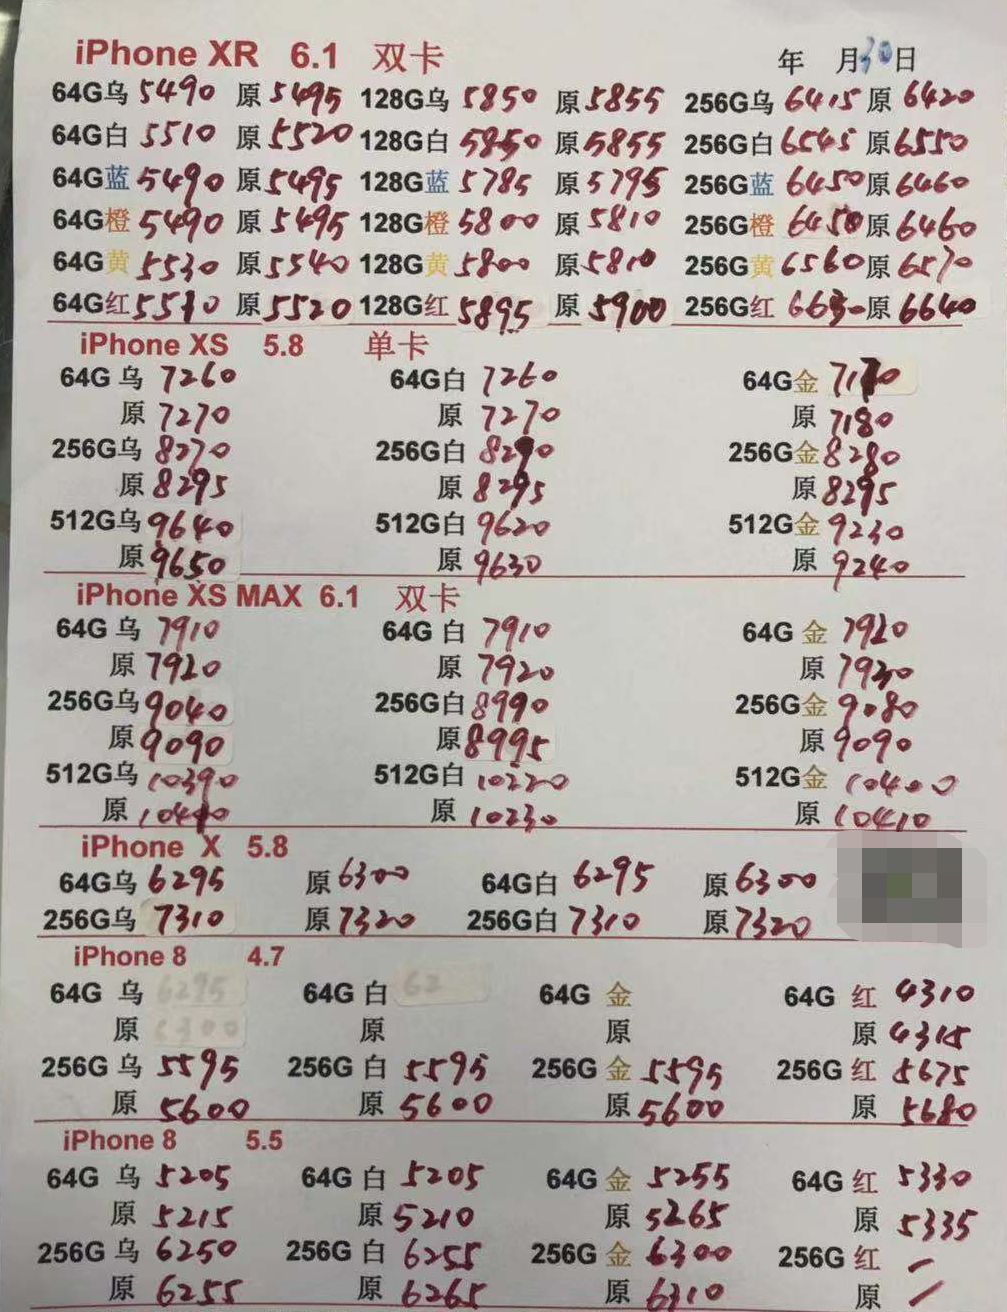 iPhone XR 6.1 双卡 年 月30日
64G乌 5490 原 5495 128G乌 5850 原 5855 256G乌 6415 原 6420
64G白 5510 原 5520 128G白 5850 原 5855 256G白 6545 原 6550
64G蓝 5490 原 5495 128G蓝 5785 原 5795 256G蓝 6450 原 6460
64G橙 5490 原 5495 128G橙 5800 原 5810 256G橙 6450 原 6460
64G黄 5530 原 5540 128G黄 5800 原 5810 256G黄 6560 原 6570
64G红 5510 原 5520 128G红 5895 原 5900 256G红 6630 原 6640
iPhone XS 5.8 单卡
64G 乌 7260 64G白 7260 64G金
原 7270 原 7270 原 7180
256G乌 8270 256G白 8290 256G金 8280
原 8295 原 8295 原 8295
512G乌 9640 512G白 9620 512G金 9230
原 9650 原 9630 原 9240
iPhone XS MAX 6.1 双卡
64G 乌 7910 64G 白 7910 64G 金 7920
原 7920 原 7920 原 7930
256G乌 9040 256G白 8990 256G金 9080
原 9090 原 8995 原 9090
512G乌 10390 512G白 10220 512G金 10400
原 10400 原 10230 原 10410
iPhone X 5.8
64G乌 6295 原 6300 64G白 6295 原 6300
256G乌 7310 原 7320 256G白 7310 原 7320
iPhone 8 4.7
64G 乌 6295 64G 白 62 64G 金 64G 红 4310
原 6300 原 原 原 4315
256G 乌 5595 256G 白 5595 256G 金 5595 256G 红 5675
原 5600 原 5600 原 5600 原 5680
iPhone 8 5.5
64G 乌 5205 64G 白 5205 64G 金 5255 64G 红 5330
原 5215 原 5210 原 5265 原 5335
256G 乌 6250 256G 白 6255 256G 金 6300 256G 红 –
原 6255 原 6265 原 6310 原 –